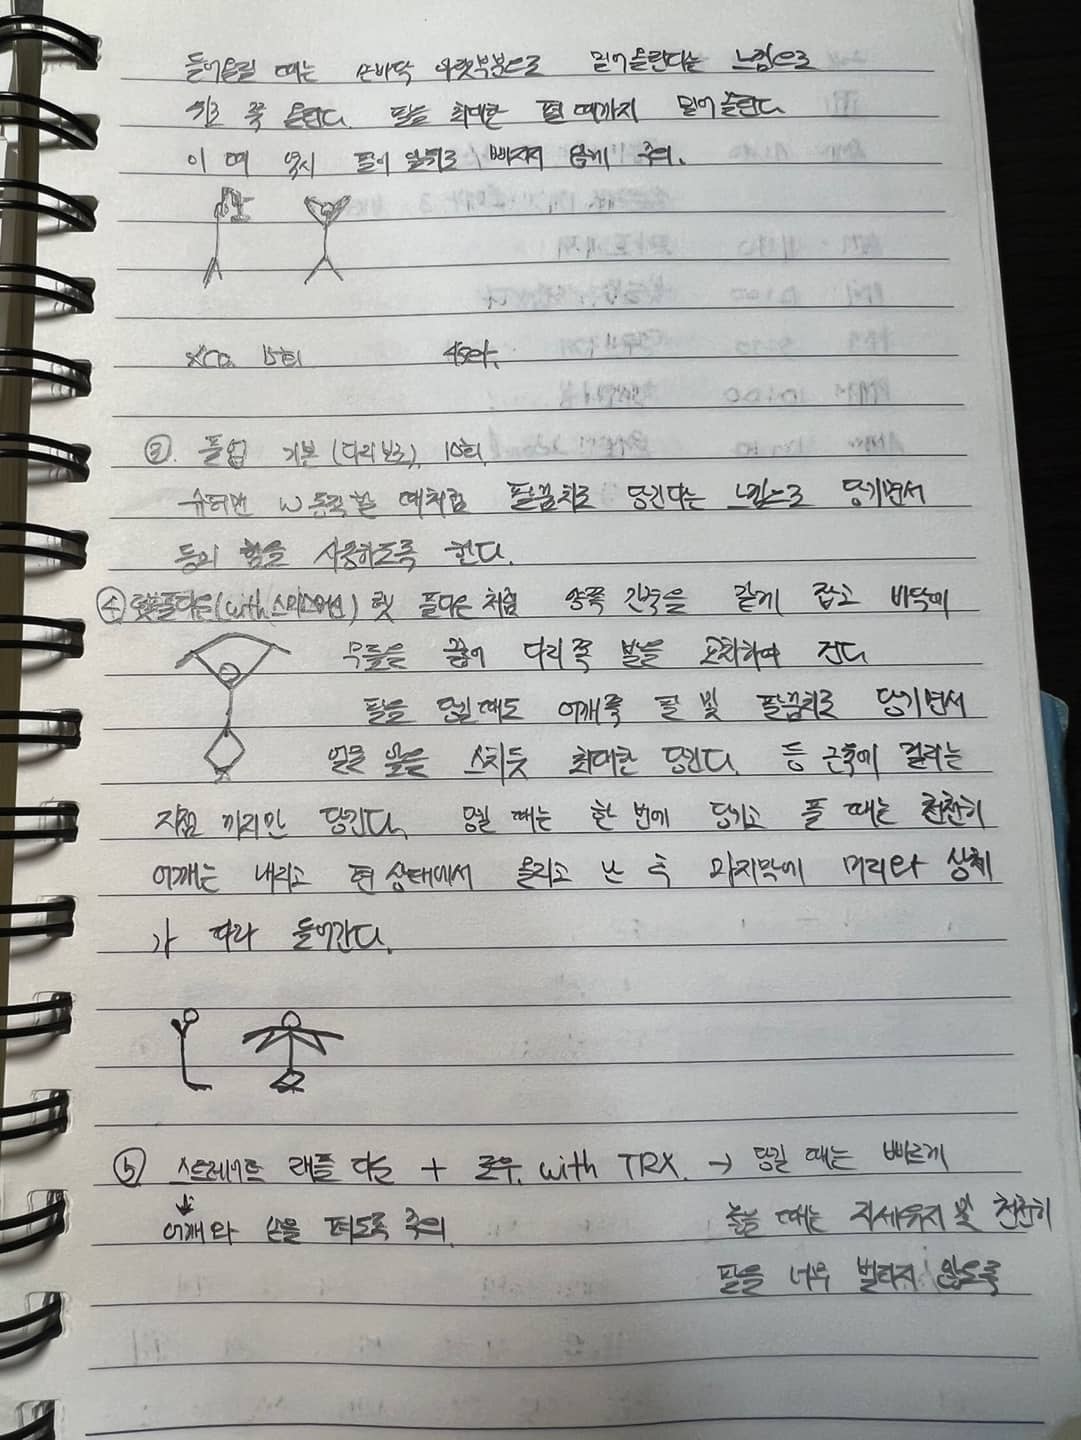 들어올릴 때는 손바닥 아랫부분으로 밀어올린다는 느낌으로
위로 쭉 올린다. 팔을 최대한 펼 때까지 밀어올린다.
이 때 역시 팔이 앞뒤로 빠지지 않게 주의.
15회 4set.
③. 풀업 기본 (다리보조). 10회.
슈퍼맨 W동작 할 때처럼 팔꿈치로 당긴다는 느낌으로 당기면서
등의 힘을 사용하도록 한다.
④ 랫풀다운(with 스미스머신) 랫 풀다운처럼 양쪽 간격을 같게 잡고 바닥에
무릎을 꿇어 다리쪽 발을 교차하여 건다
팔을 당길때도 어깨쪽 팔 및 팔꿈치로 당기면서
얼굴 앞을 스치듯 최대한 당긴다. 등 근육에 걸리는
지점 까지만 당긴다. 당길 때는 한 번에 당기고 풀 때는 천천히
어깨는 내리고 편 상태에서 올리고 난 후 마지막에 머리와 상체
가 따라 들어간다.
⑤ 스트레이트 래풀 다운 + 로우. with TRX. → 당길 때는 빠르게
↓
어깨와 손을 펴도록 주의. 놓을 때는 자세유지 및 천천히
팔을 너무 벌리지 않도록